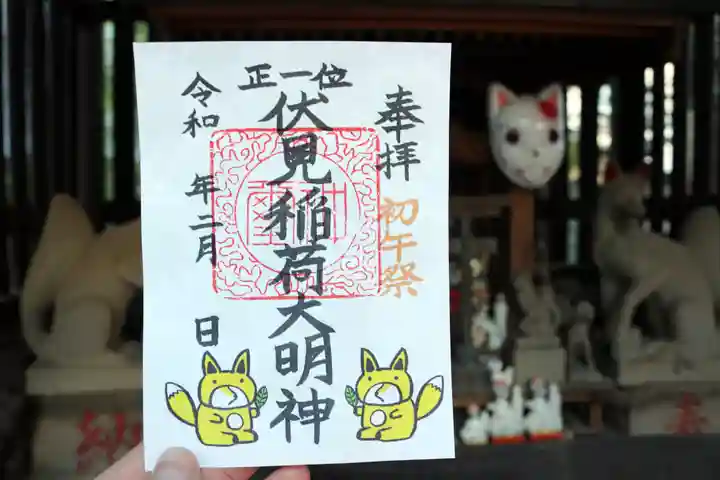 奉拝
初午祭
正一位
伏見稲荷大明神
令和 年二月 日